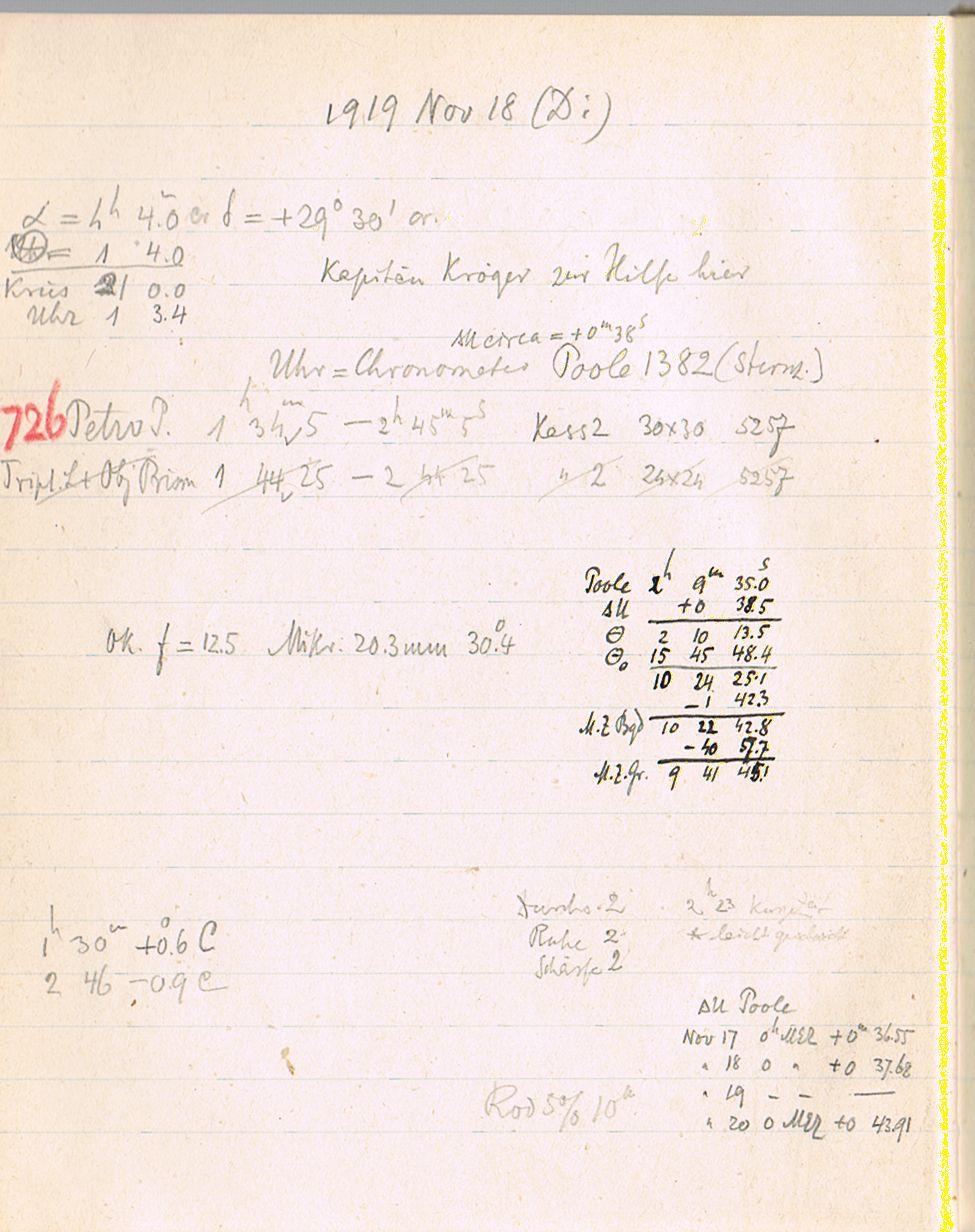 1919 Nov 18 (Di)
α = 4h 4.0m δ = +29° 30'
1 4.0
Kreis 21 0.0
Uhr 1 3.4
Kapitän Kröger zur Hilfe hier
ΔU circa = +0m 38s
Uhr = Chronometer Poole 1382 (Sternz.)
726 Petro P. 1h 34m 5 – 2h 45m 5s Kass 2 30x30 5257
Tript. L + Obj Prism 1 44 25 – 2 44 25 " 2 24x24 5257
Poole 2h 9m 35.0s
ΔU +0 38.5
Θ 2 10 13.5
Θ₀ 15 45 48.4
10 24 25.1
–1 42.3
M.Z Bgd 10 22 42.8
–40 57.7
M.Z.Gr. 9 41 45.1
Ok. f = 12.5 Mikr. 20.3mm 30°.4
Durchs. 2
Ruhe 2
Schärfe 2
2h 23
* leicht
1h 30m +0°.6 C
2 46 –0.9 C
ΔU Poole
Nov 17 0h MEZ +0m 36.55
" 18 0 " +0 37.68
" 19 – – —
" 20 0 MEZ +0 43.91
Rod 5% 10m